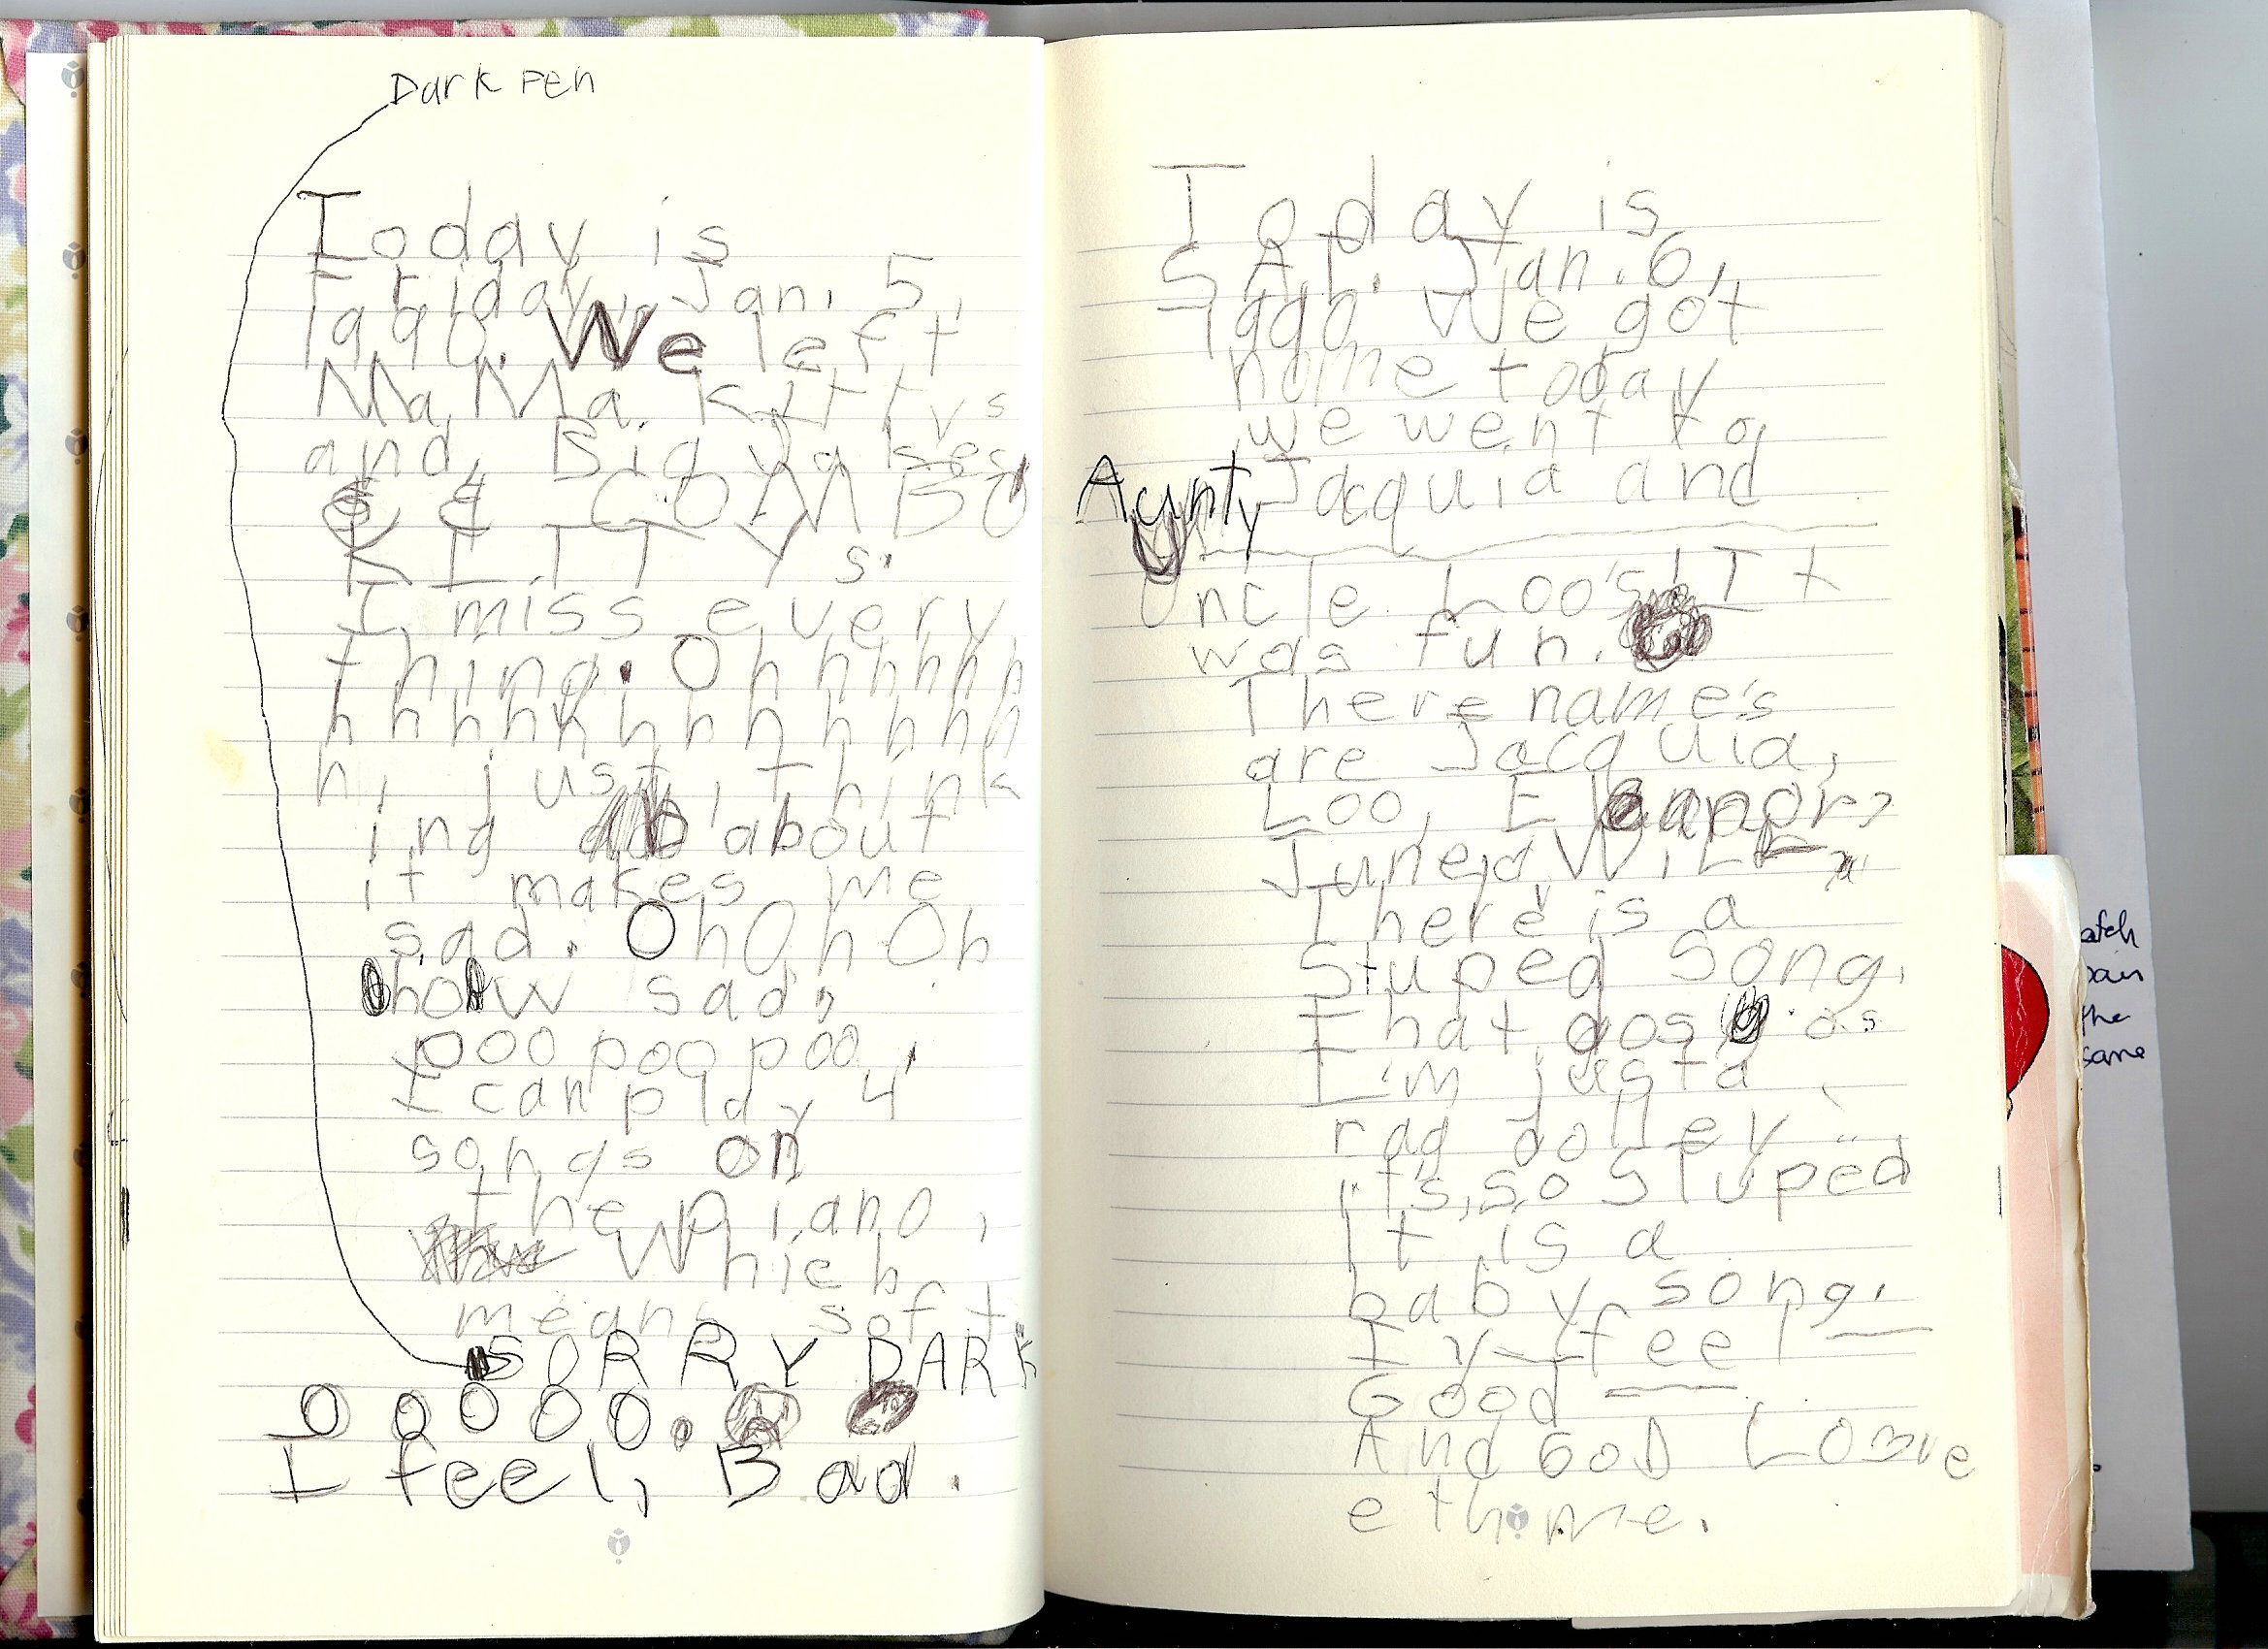 Dark Pen
Today is
Friday, Jan. 5,
1990. We left
Ma Ma Kittys
and, Big
& & COMBO
KITTYs.
I miss every
thing. Ohhhhhh
hhhhhhhhhhhh
h, just, think
ing about
it makes me
sad. Oh Oh Oh
how sad,
poo poo poo,
I can play 4
songs on
the piano,
Which
means soft
SORRY DARK
o o o o o.
I feel, Bad.
Today is
SAT. Jan. 6,
1990. We got
home today
we went to,
Aunty Jacquia and
Uncle Loo's! It
was fun.
There name's
are Jacquia,
Loo, Eleanor,
June, d Will
There is a
Stuped song,
that gos os
I'm just a
rag dolley
it's, so Stuped
It is a
baby song.
I feel
Good
And GOD Lo ve
e th me.
atch
pain
the
same